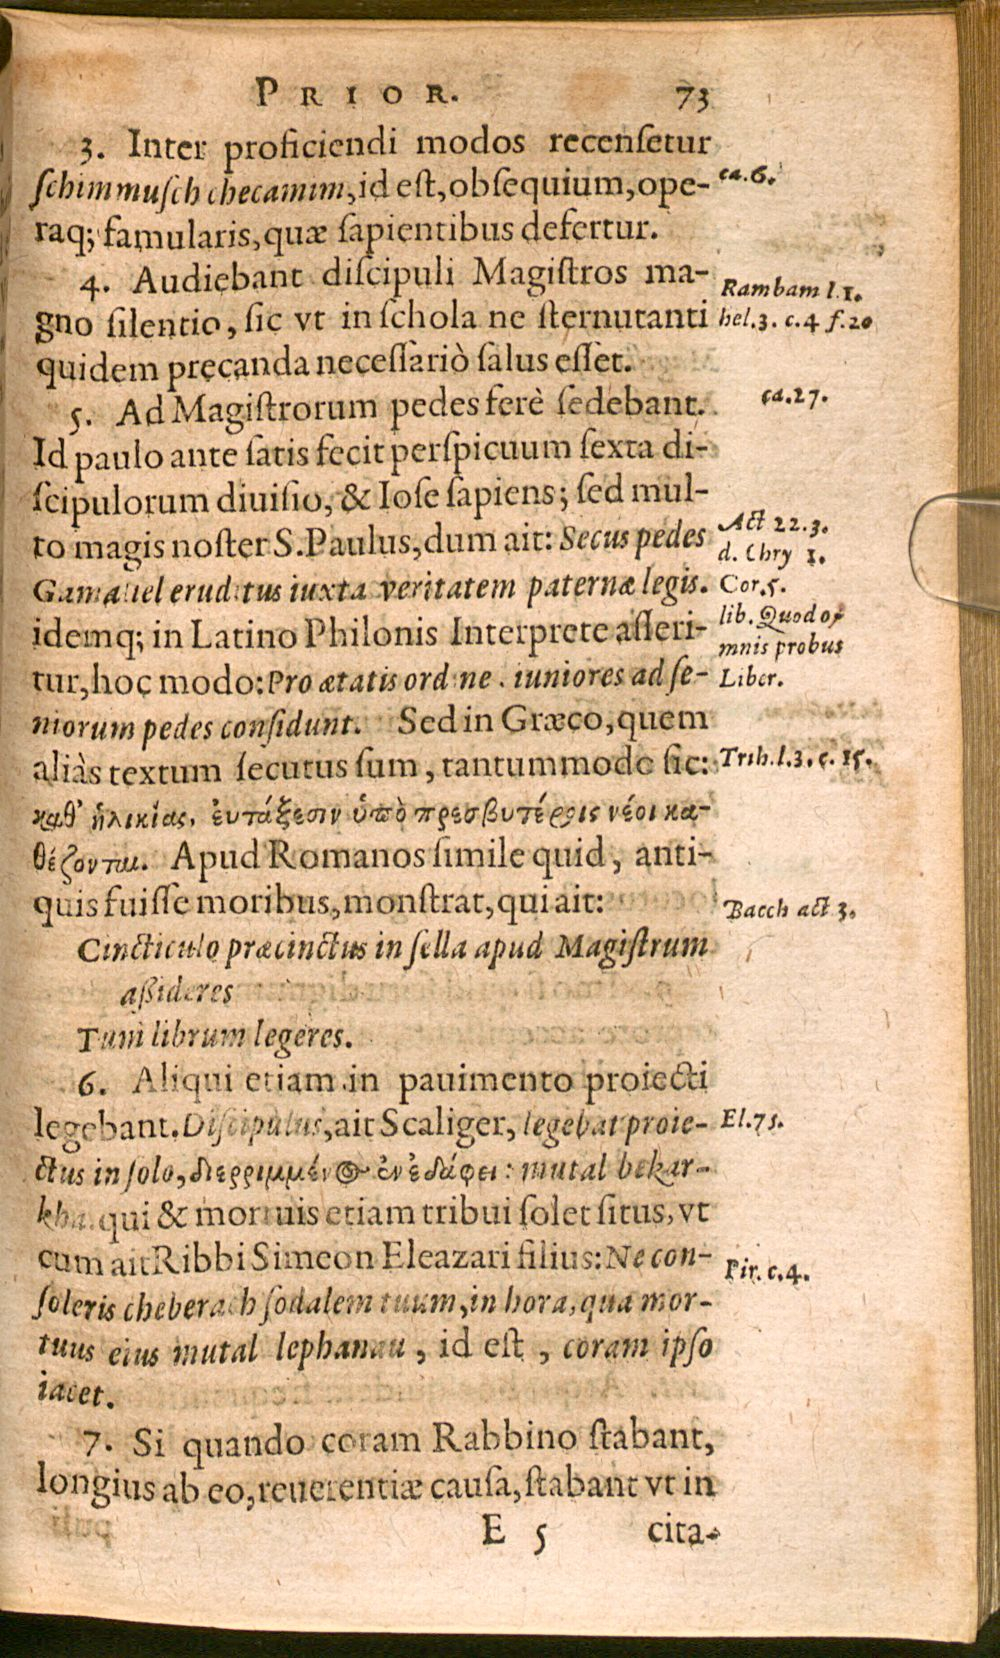 PRIOR. 73
3. Inter proficiendi modos recensetur
schimmusch checamim, id est, obsequium, ope- ca.6.
raq; famularis, quæ sapientibus defertur.
4. Audiebant discipuli Magistros ma- Rambam l.1.
gno silentio, sic vt in schola ne sternutanti hel.3. c.4 f.20
quidem precanda necessariò salus esset.
5. Ad Magistrorum pedes ferè sedebant. ca.27.
Id paulo ante satis fecit perspicuum sexta di-
scipulorum diuisio, & Iose sapiens; sed mul-
to magis noster S. Paulus, dum ait: Secus pedes Act 22.3.
d. Chry 1.
Gamaliel eruditus iuxta veritatem paternæ legis. Cor.5.
idemq; in Latino Philonis Interprete asseri- lib. Quod o-
mnis probus
tur, hoc modo: Pro ætatis ordine. iuniores ad se- Liber.
niorum pedes considunt. Sed in Græco, quem
aliàs textum secutus sum, tantummodo sic: Trih.l.3. c. 15.
καθ' ἡλικίας, ἐυτάξεσιν ὑπὸ πρεσβυτέροις νέοι κα-
θέζονται. Apud Romanos simile quid, anti-
quis fuisse moribus, monstrat, qui ait: Bacch act 3.
Cincticulo præcinctus in sella apud Magistrum
assideres
Tum librum legeres.
6. Aliqui etiam in pauimento proiecti
legebant. Discipulus, ait Scaliger, legebat proie- El.75.
ctus in solo, διερριμμένος ἐν ἐδάφει: mutal bekar-
kha. qui & mortuis etiam tribui solet situs, vt
cum ait Ribbi Simeon Eleazari filius: Ne con- Pir. c.4.
soleris cheberach sodalem tuum, in hora, qua mor-
tuus eius mutal lephanau, id est, coram ipso
iacet.
7. Si quando coram Rabbino stabant,
longius ab eo, reuerentiæ causa, stabant vt in
E 5 cita-